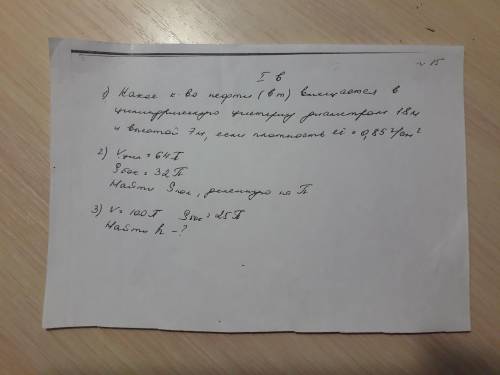 № 15
I в
1) Какое к-во нефти (в т) вмещается в
цилиндрическую цистерну диаметром 18 м
и высотой 7 м, если плотность её = 0,85 г/см²
2) Vцил = 64π
Sбок = 32π
Найти Sпол, деленную на π
3) V = 100π Sбок = 25π
Найти h - ?